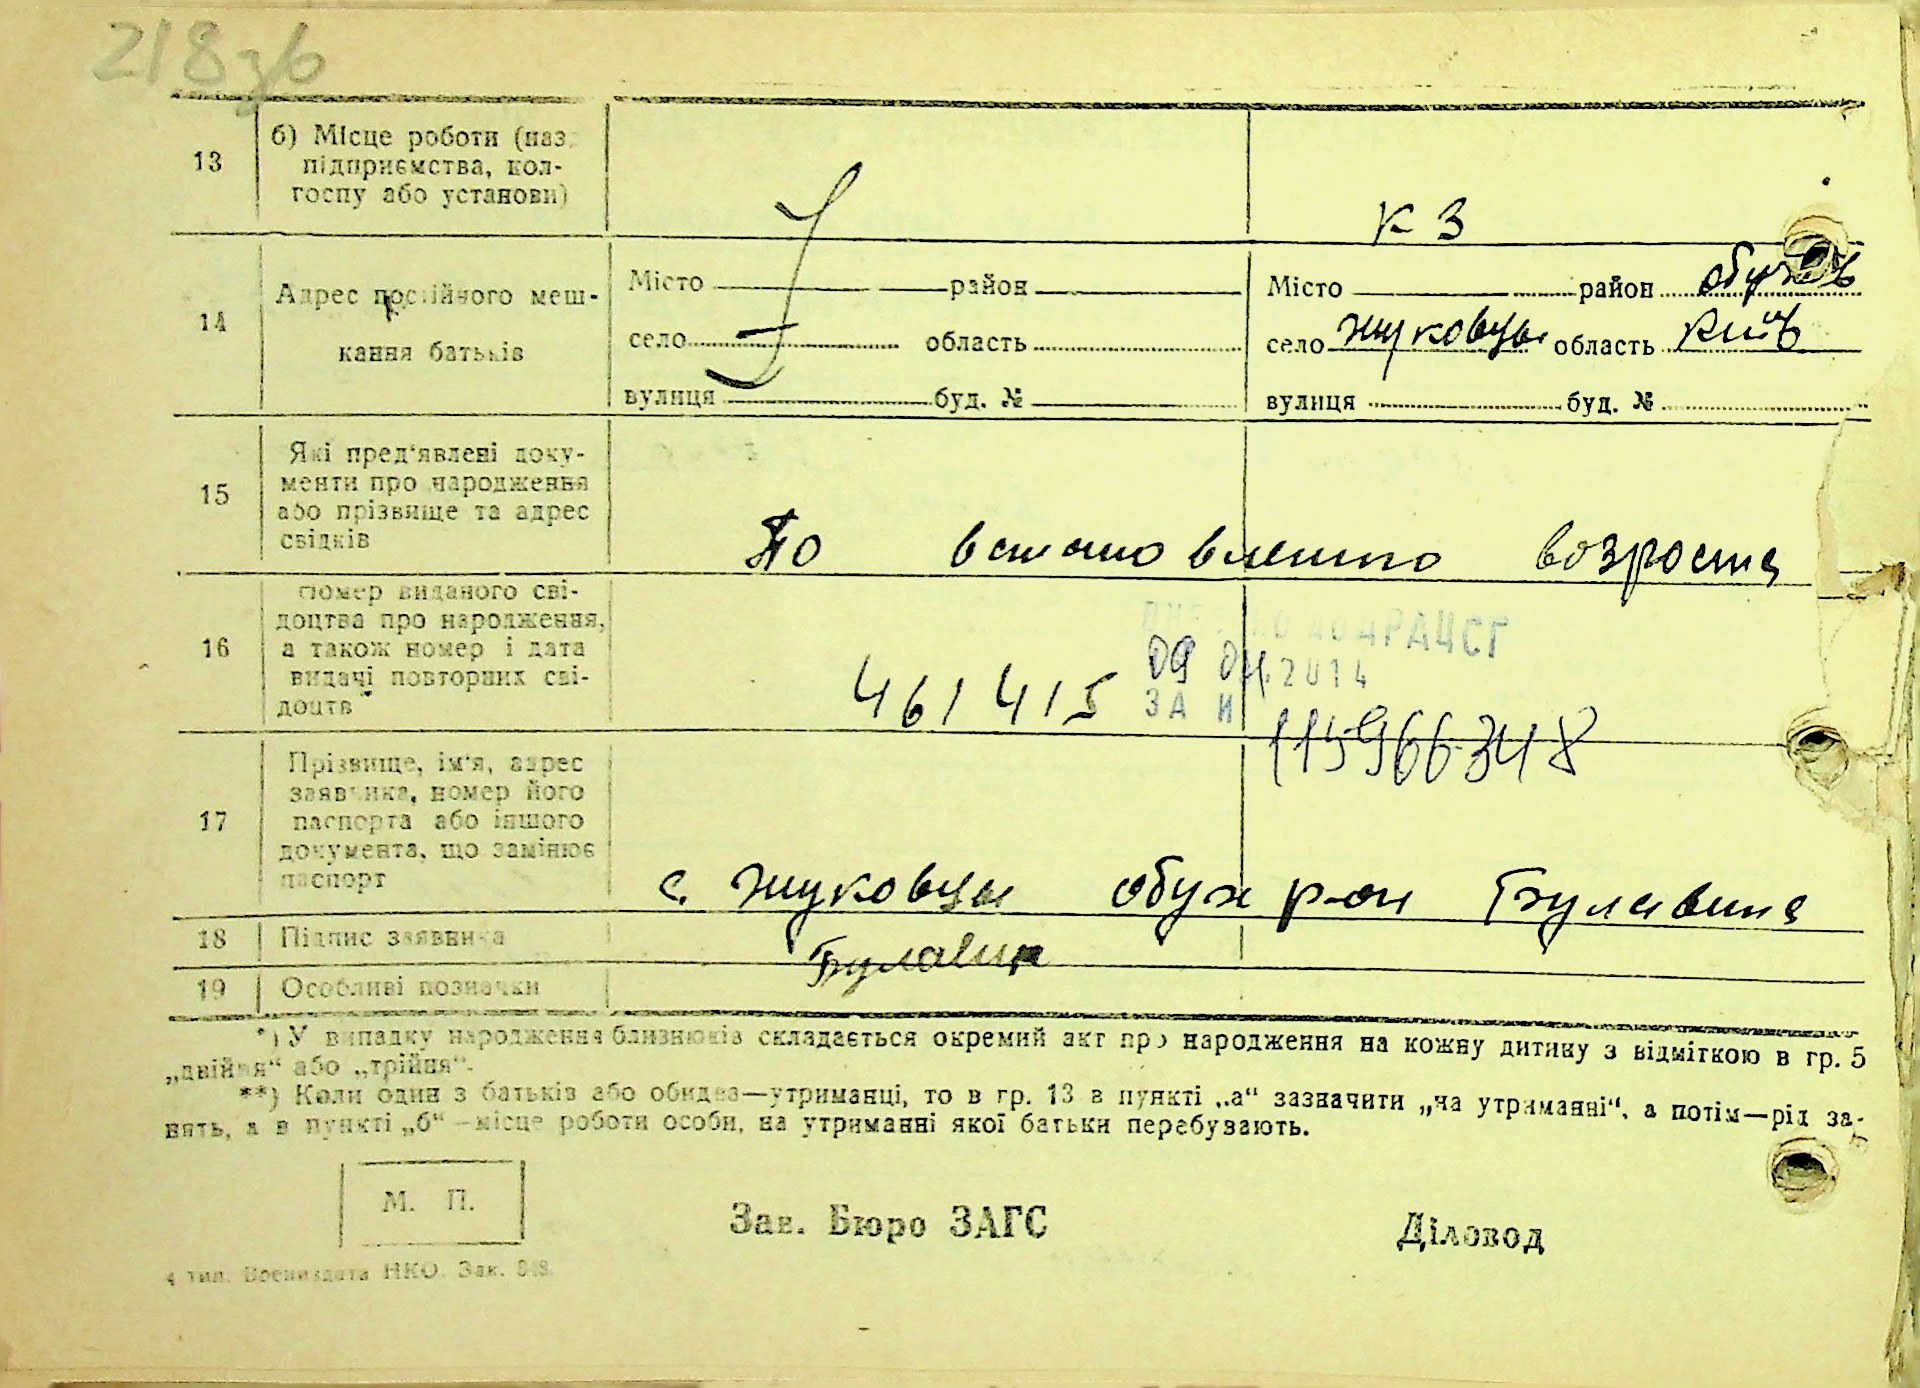 218зв
13
б) Місце роботи (наз.
підприємства, кол-
госпу або установи)
К З
14
Адрес постійного меш-
кання батьків
Місто район
село область
вулиця буд. №
Місто район Обухів
село Жуковцы область Київ
вулиця буд. №
15
Які пред'явлені доку-
менти про народження
або прізвище та адрес
свідків
По встановленню возроста
16
Номер виданого сві-
доцтва про народження,
а також номер і дата
видачі повторних сві-
доцтв
461415
ДРАЦСГ
09 04.2014
ЗА №
115966348
17
Прізвище, ім'я, адрес
заявника, номер його
паспорта або іншого
документа, що замінює
паспорт
с. Жуковцы Обух р-он Булавина
18
Підпис заявника
Булавин
19
Особливі позначки
*) У випадку народження близнюків складається окремий акт про народження на кожну дитину з відміткою в гр. 5
„двійня“ або „трійня“.
**) Коли один з батьків або обидва—утриманці, то в гр. 13 в пункті „а“ зазначити „на утриманні“, а потім—рід за-
нять, а в пункті „б“—місце роботи особи, на утриманні якої батьки перебувають.
М. П.
Зав. Бюро ЗАГС
Діловод
4 тип. Воениздата НКО. Зак. 848.